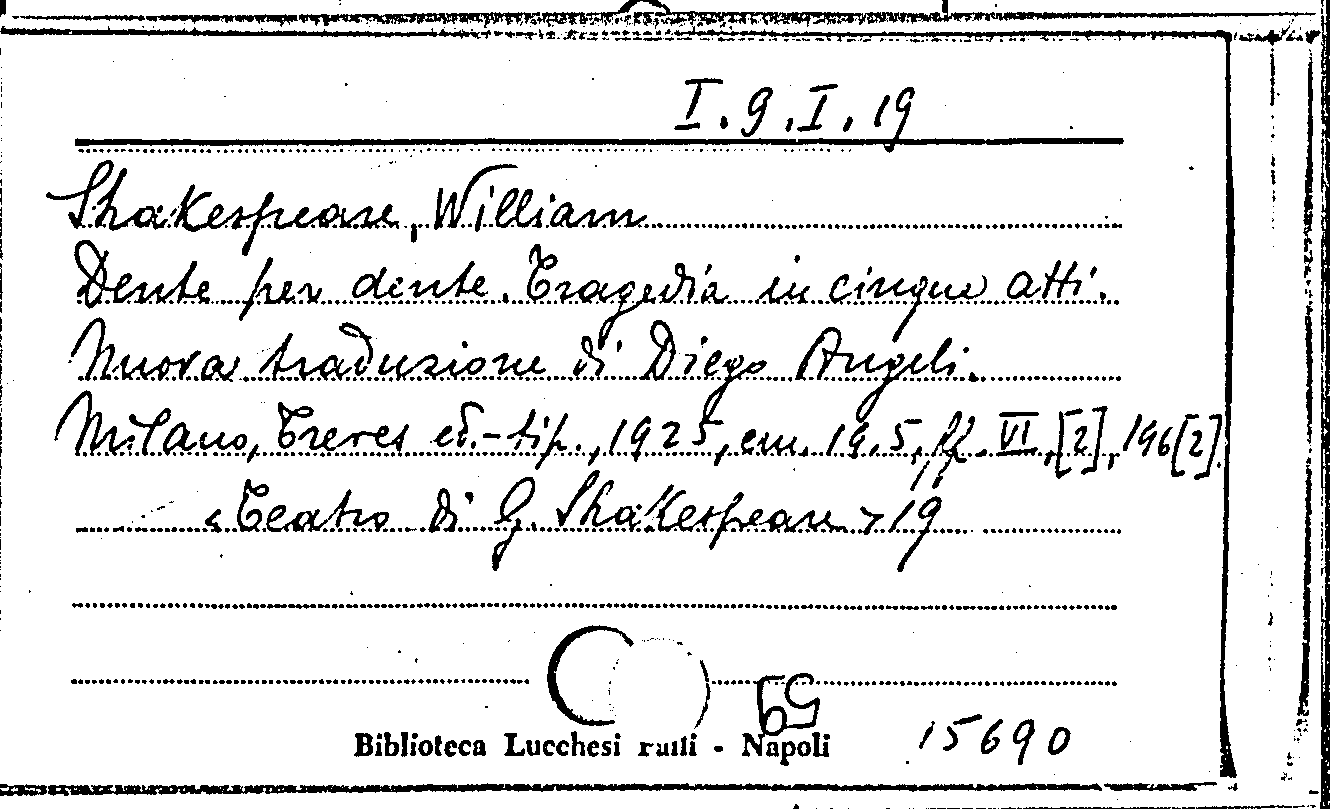 I.9.I.19
Shakespeare, William
Dente per dente. Tragedia in cinque atti.
Nuova traduzione di Diego Angeli.
Milano, Treves ed.-tip., 1925, cm. 19.5, pp. VI, [2], 196[2].
<Teatro di G. Shakespeare> 19
59
Biblioteca Lucchesi - Napoli
15690